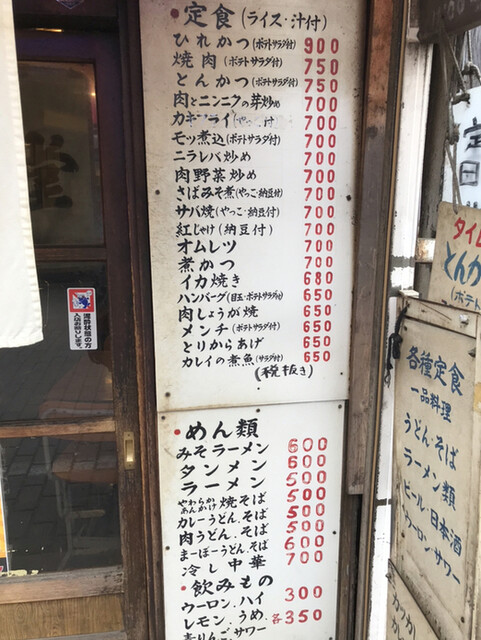 ・定食(ライス・汁付)
ひれかつ(ポテトサラダ付) 900
焼肉(ポテトサラダ付) 750
とんかつ(ポテトサラダ付) 750
肉とニンニクの芽炒め 700
カキフライ 700
モツ煮込(ポテトサラダ付) 700
ニラレバ炒め 700
肉野菜炒め 700
さばみそ煮(やっこ・納豆付) 700
サバ焼(やっこ・納豆付) 700
紅じゃけ(納豆付) 700
オムレツ 700
煮かつ 700
イカ焼き 680
ハンバーグ(目玉・ポテトサラダ付) 650
肉しょうが焼 650
メンチ(ポテトサラダ付) 650
とりからあげ 650
カレイの煮魚(サラダ付) 650
(税抜き)
・めん類
みそラーメン 600
タンメン 600
ラーメン 500
やわらかあんかけ焼そば 500
カレーうどん.そば 500
肉うどん.そば 500
まーぼーうどん.そば 600
冷し中華 700
・飲みもの
ウーロン.ハイ 300
レモン.うめ. 各350
青りんごサワー
泥酔状態の方
入店お断りします。
定
日
タイム
とんか
(ポテト
各種定食
一品料理
うどん・そば
ラーメン類
ビール・日本酒
ウーロンサワー